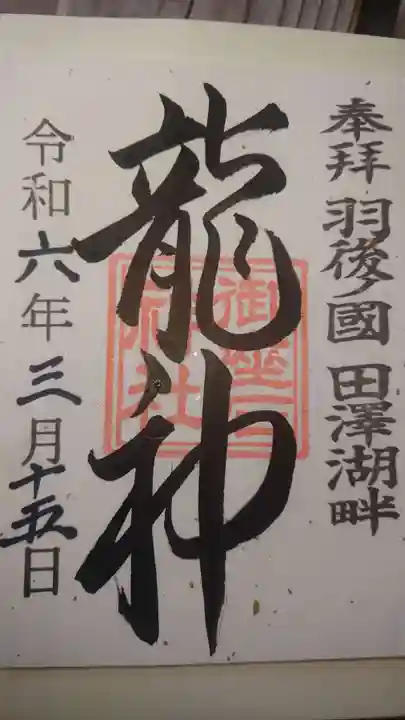 奉拝 羽後ノ國 田澤湖畔
龍神
御座石
神社
令和六年三月十五日